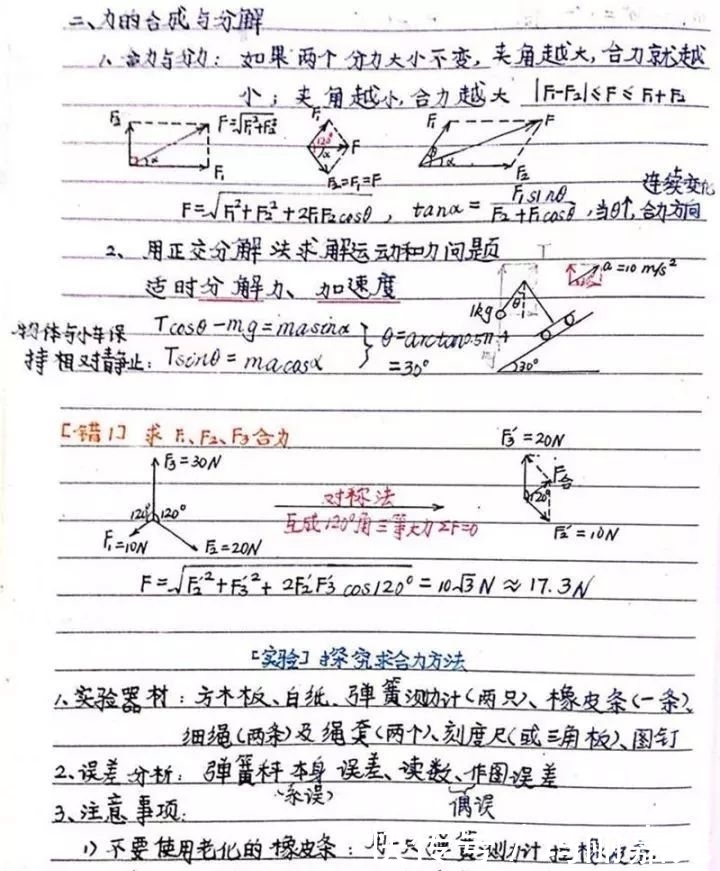 二、力的合成与分解
1、合力与分力：如果两个分力大小不变，夹角越大，合力就越
小；夹角越小，合力越大 |F₁-F₂|≤F≤F₁+F₂
F₂ F=√F₁²+F₂² F₁ α
F₁ 120° α F F₂=F₁=F
F₁ F θ α F₂
连续变化
F=√F₁²+F₂²+2F₁F₂cosθ，tanα=F₁sinθ/F₂+F₁cosθ，当θ↑，合力方向
2、用正交分解法求解运动和力问题
适时分解力、加速度
T a=10 m/s²
1kg θ 30°
物体与小车保
持相对静止：
Tcosθ-mg=masinα
Tsinθ=macosα
θ=arctan0.577
=30°
[错1] 求F₁、F₂、F₃合力
F₃=30N 120° 120° F₁=10N F₂=20N
对称法
互成120°角三等大力ΣF=0
F₃'=20N F合 120° F₂'=10N
F=√F₂'²+F₃'²+2F₂'F₃'cos120°=10√3N≈17.3N
[实验] 探究求合力方法
1、实验器材：方木板、白纸、弹簧测力计(两只)、橡皮条(一条)、
细绳(两条)及绳套(两个)、刻度尺(或三角板)、图钉
2、误差分析：弹簧秤本身误差、读数、作图误差
(系误) 偶误
3、注意事项：
1) 不要使用老化的橡皮条：